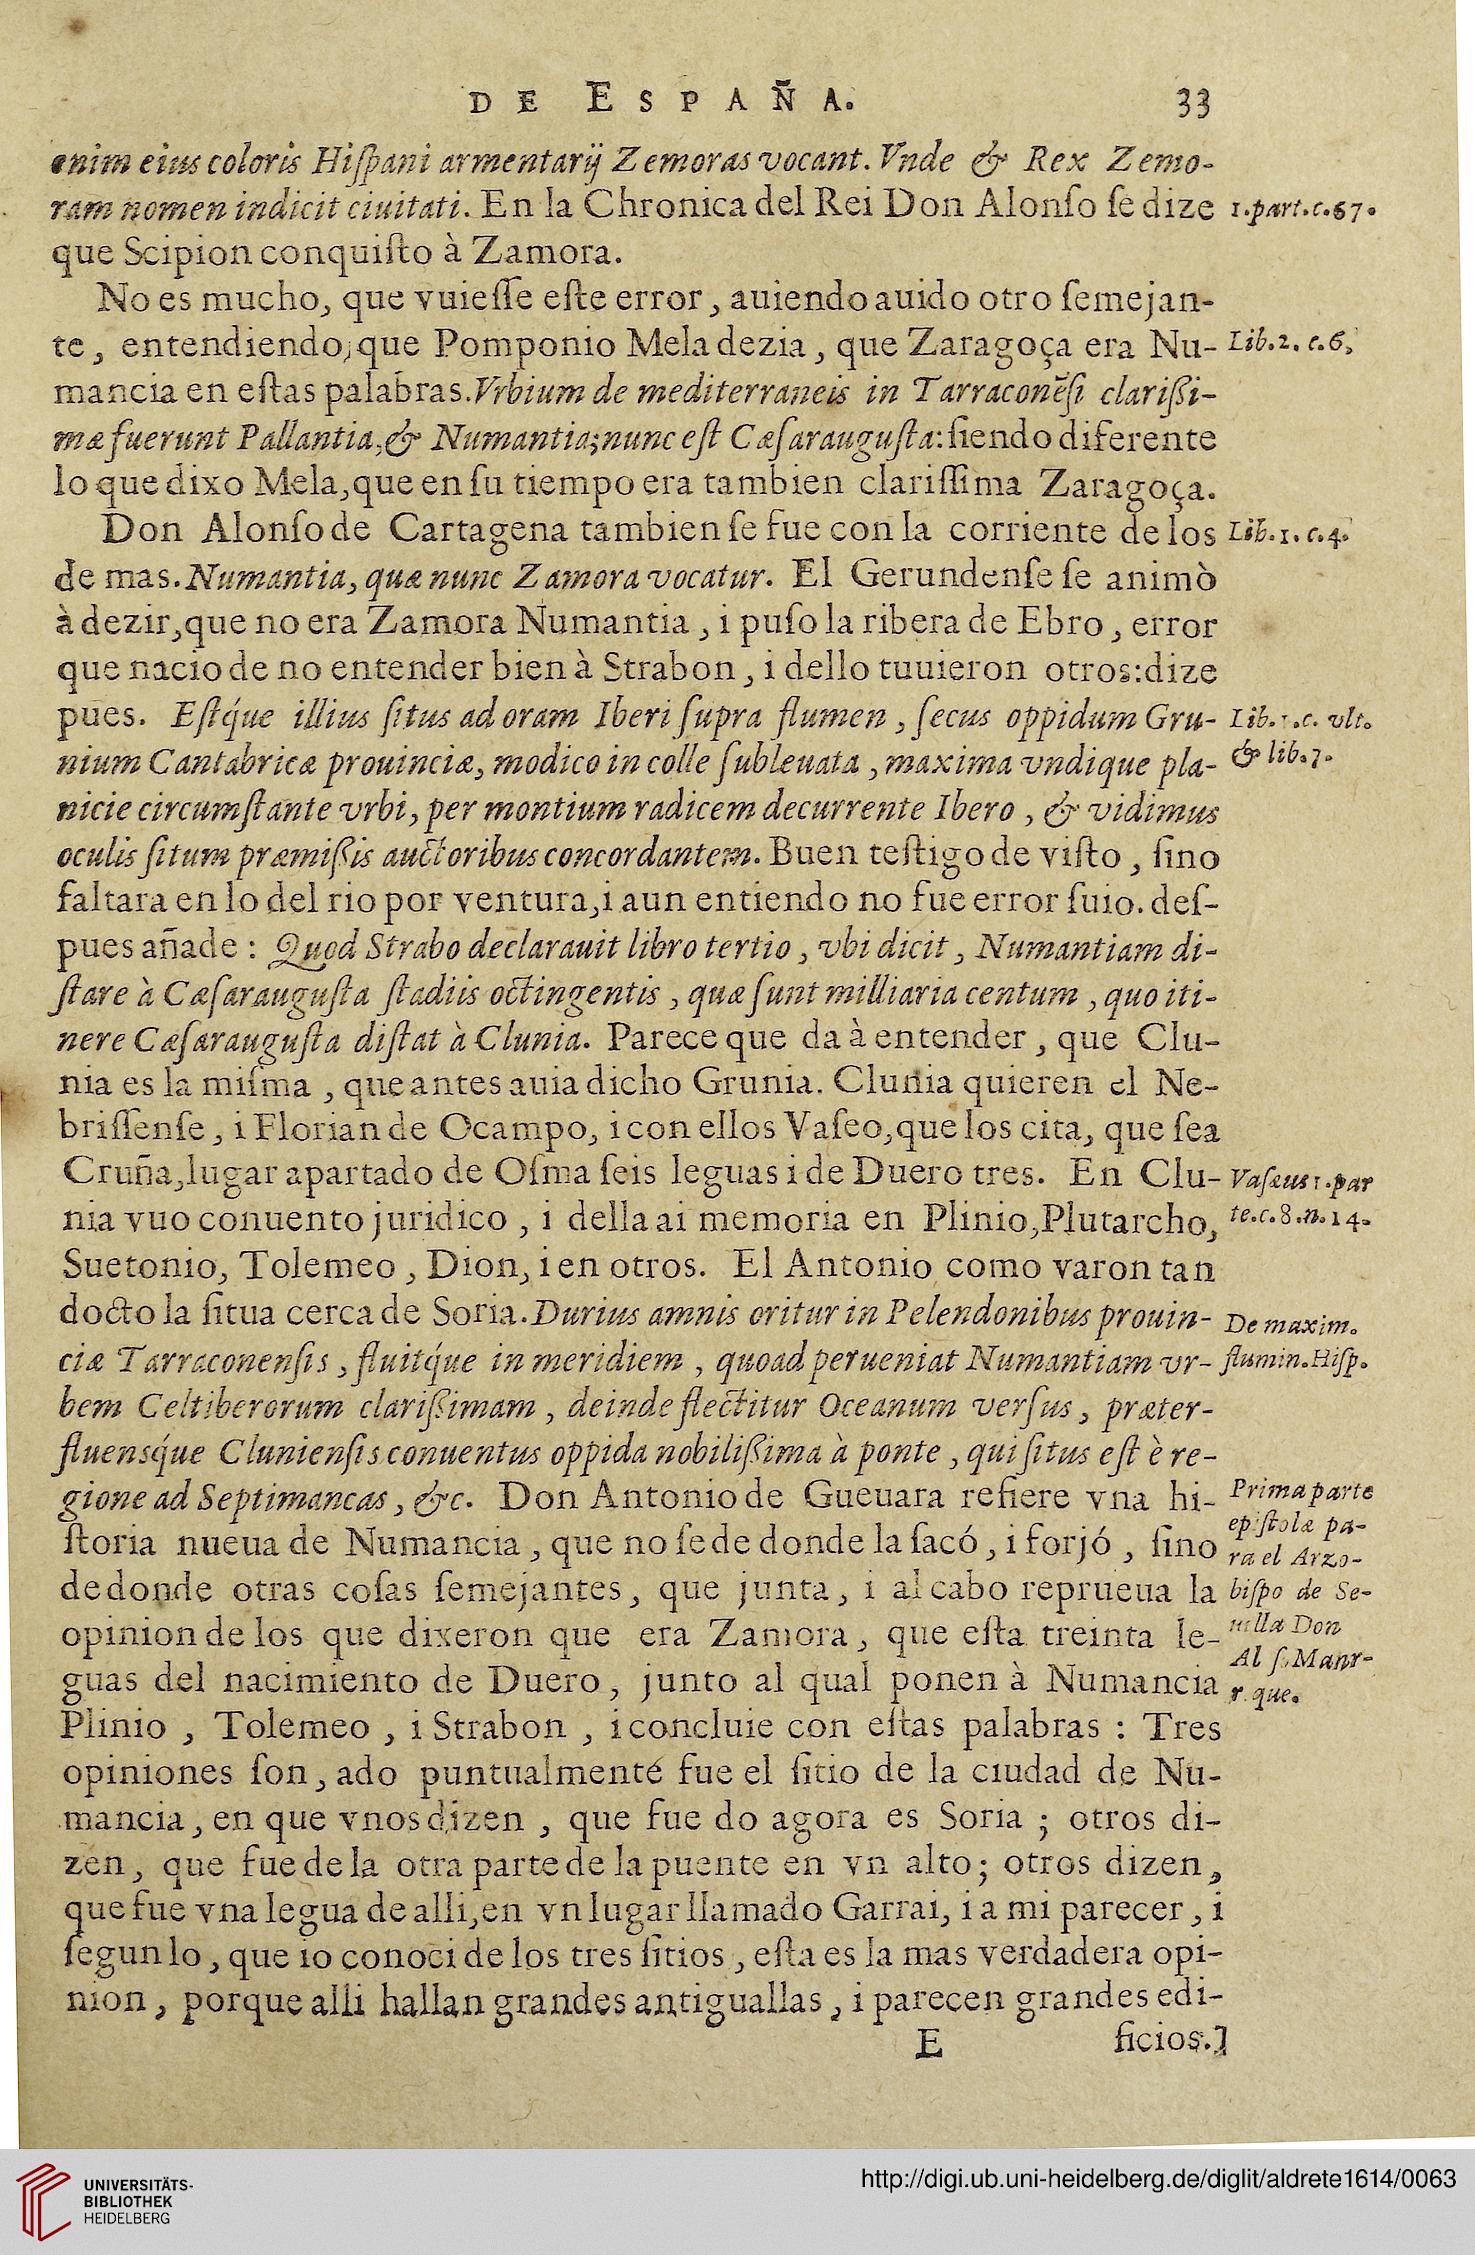 DE ESPAÑA. 33
enim eius coloris Hiſpani armentarij Zemoras vocant. Vnde & Rex Zemo-
ram nomen indicit ciuitati. En la Chronica del Rei Don Alonſo ſe dize 1.part.c.67.
que Scipion conquiſto à Zamora.
No es mucho, que vuieſſe eſte error, auiendo auido otro ſemejan-
te, entendiendo, que Pomponio Mela dezia, que Zaragoça era Nu- Lib.2. c.6.
mancia en eſtas palabras. Vrbium de mediterraneis in Tarraconẽſi clarißi-
mæ fuerunt Pallantia, & Numantia; nunc eſt Cæſarauguſta: ſiendo diferente
lo que dixo Mela, que en ſu tiempo era tambien clariſſima Zaragoça.
Don Alonſo de Cartagena tambien ſe fue con la corriente de los Lib.1.c.4.
de mas. Numantia, quæ nunc Zamora vocatur. El Gerundenſe ſe animò
à dezir, que no era Zamora Numantia, i puſo la ribera de Ebro, error
que nacio de no entender bien à Strabon, i dello tuuieron otros: dize
pues. Eſtq́ue illius ſitus ad oram Iberi ſupra flumen, ſecus oppidum Gru- Lib.1.c. vlt.
nium Cantabricæ prouinciæ, modico in colle ſubleuata, maxima vndique pla- & lib.7.
nicie circumſtante vrbi, per montium radicem decurrente Ibero, & vidimus
oculis ſitum præmißis auctoribus concordantem. Buen teſtigo de viſto, ſino
faltara en lo del rio por ventura, i aun entiendo no fue error ſuio. deſ-
pues añade: Quod Strabo declarauit libro tertio, vbi dicit, Numantiam di-
ſtare à Cæſarauguſta ſtadiis octingentis, quæ ſunt milliaria centum, quo iti-
nere Cæſarauguſta diſtat à Clunia. Parece que da à entender, que Clu-
nia es la miſma, que antes auia dicho Grunia. Clunia quieren el Ne-
briſſenſe, i Florian de Ocampo, i con ellos Vaſeo, que los cita, que ſea
Cruña, lugar apartado de Oſma ſeis leguas i de Duero tres. En Clu- Vaſæus 1.par
nia vuo conuento juridico, i della ai memoria en Plinio, Plutarcho, te.c.8.n.14.
Suetonio, Tolemeo, Dion, i en otros. El Antonio como varon tan
docto la ſitua cerca de Soria. Durius amnis oritur in Pelendonibus prouin- De maxim.
ciæ Tarraconenſis, fluitq́ue in meridiem, quoad perueniat Numantiam vr- flumin.Hiſp.
bem Celtiberorum clarißimam, deinde flectitur Oceanum verſus, præter-
fluensq́ue Clunienſis conuentus oppida nobilißima à ponte, qui ſitus eſt è re-
gione ad Septimancas, &c. Don Antonio de Gueuara refiere vna hi- Prima parte
ſtoria nueua de Numancia, que no ſe de donde la ſacó, i forjó, ſino epiſtolæ pa-
ra el Arzo-
de donde otras coſas ſemejantes, que junta, i al cabo reprueua la biſpo de Se-
opinion de los que dixeron que era Zamora, que eſta treinta le- uilla Don
Al ſ. Manr-
guas del nacimiento de Duero, junto al qual ponen à Numancia r que.
Plinio, Tolemeo, i Strabon, i concluie con eſtas palabras: Tres
opiniones ſon, ado puntualmenté fue el ſitio de la ciudad de Nu-
mancia, en que vnos dizen, que fue do agora es Soria; otros di-
zen, que fue de la otra parte de la puente en vn alto; otros dizen,
que fue vna legua de alli, en vn lugar llamado Garrai, i a mi parecer, i
ſegun lo, que io conoci de los tres ſitios, eſta es la mas verdadera opi-
nion, porque alli hallan grandes antiguallas, i parecen grandes edi-
E ficios.]
UNIVERSITÄTS-
BIBLIOTHEK
HEIDELBERG
http://digi.ub.uni-heidelberg.de/diglit/aldrete1614/0063